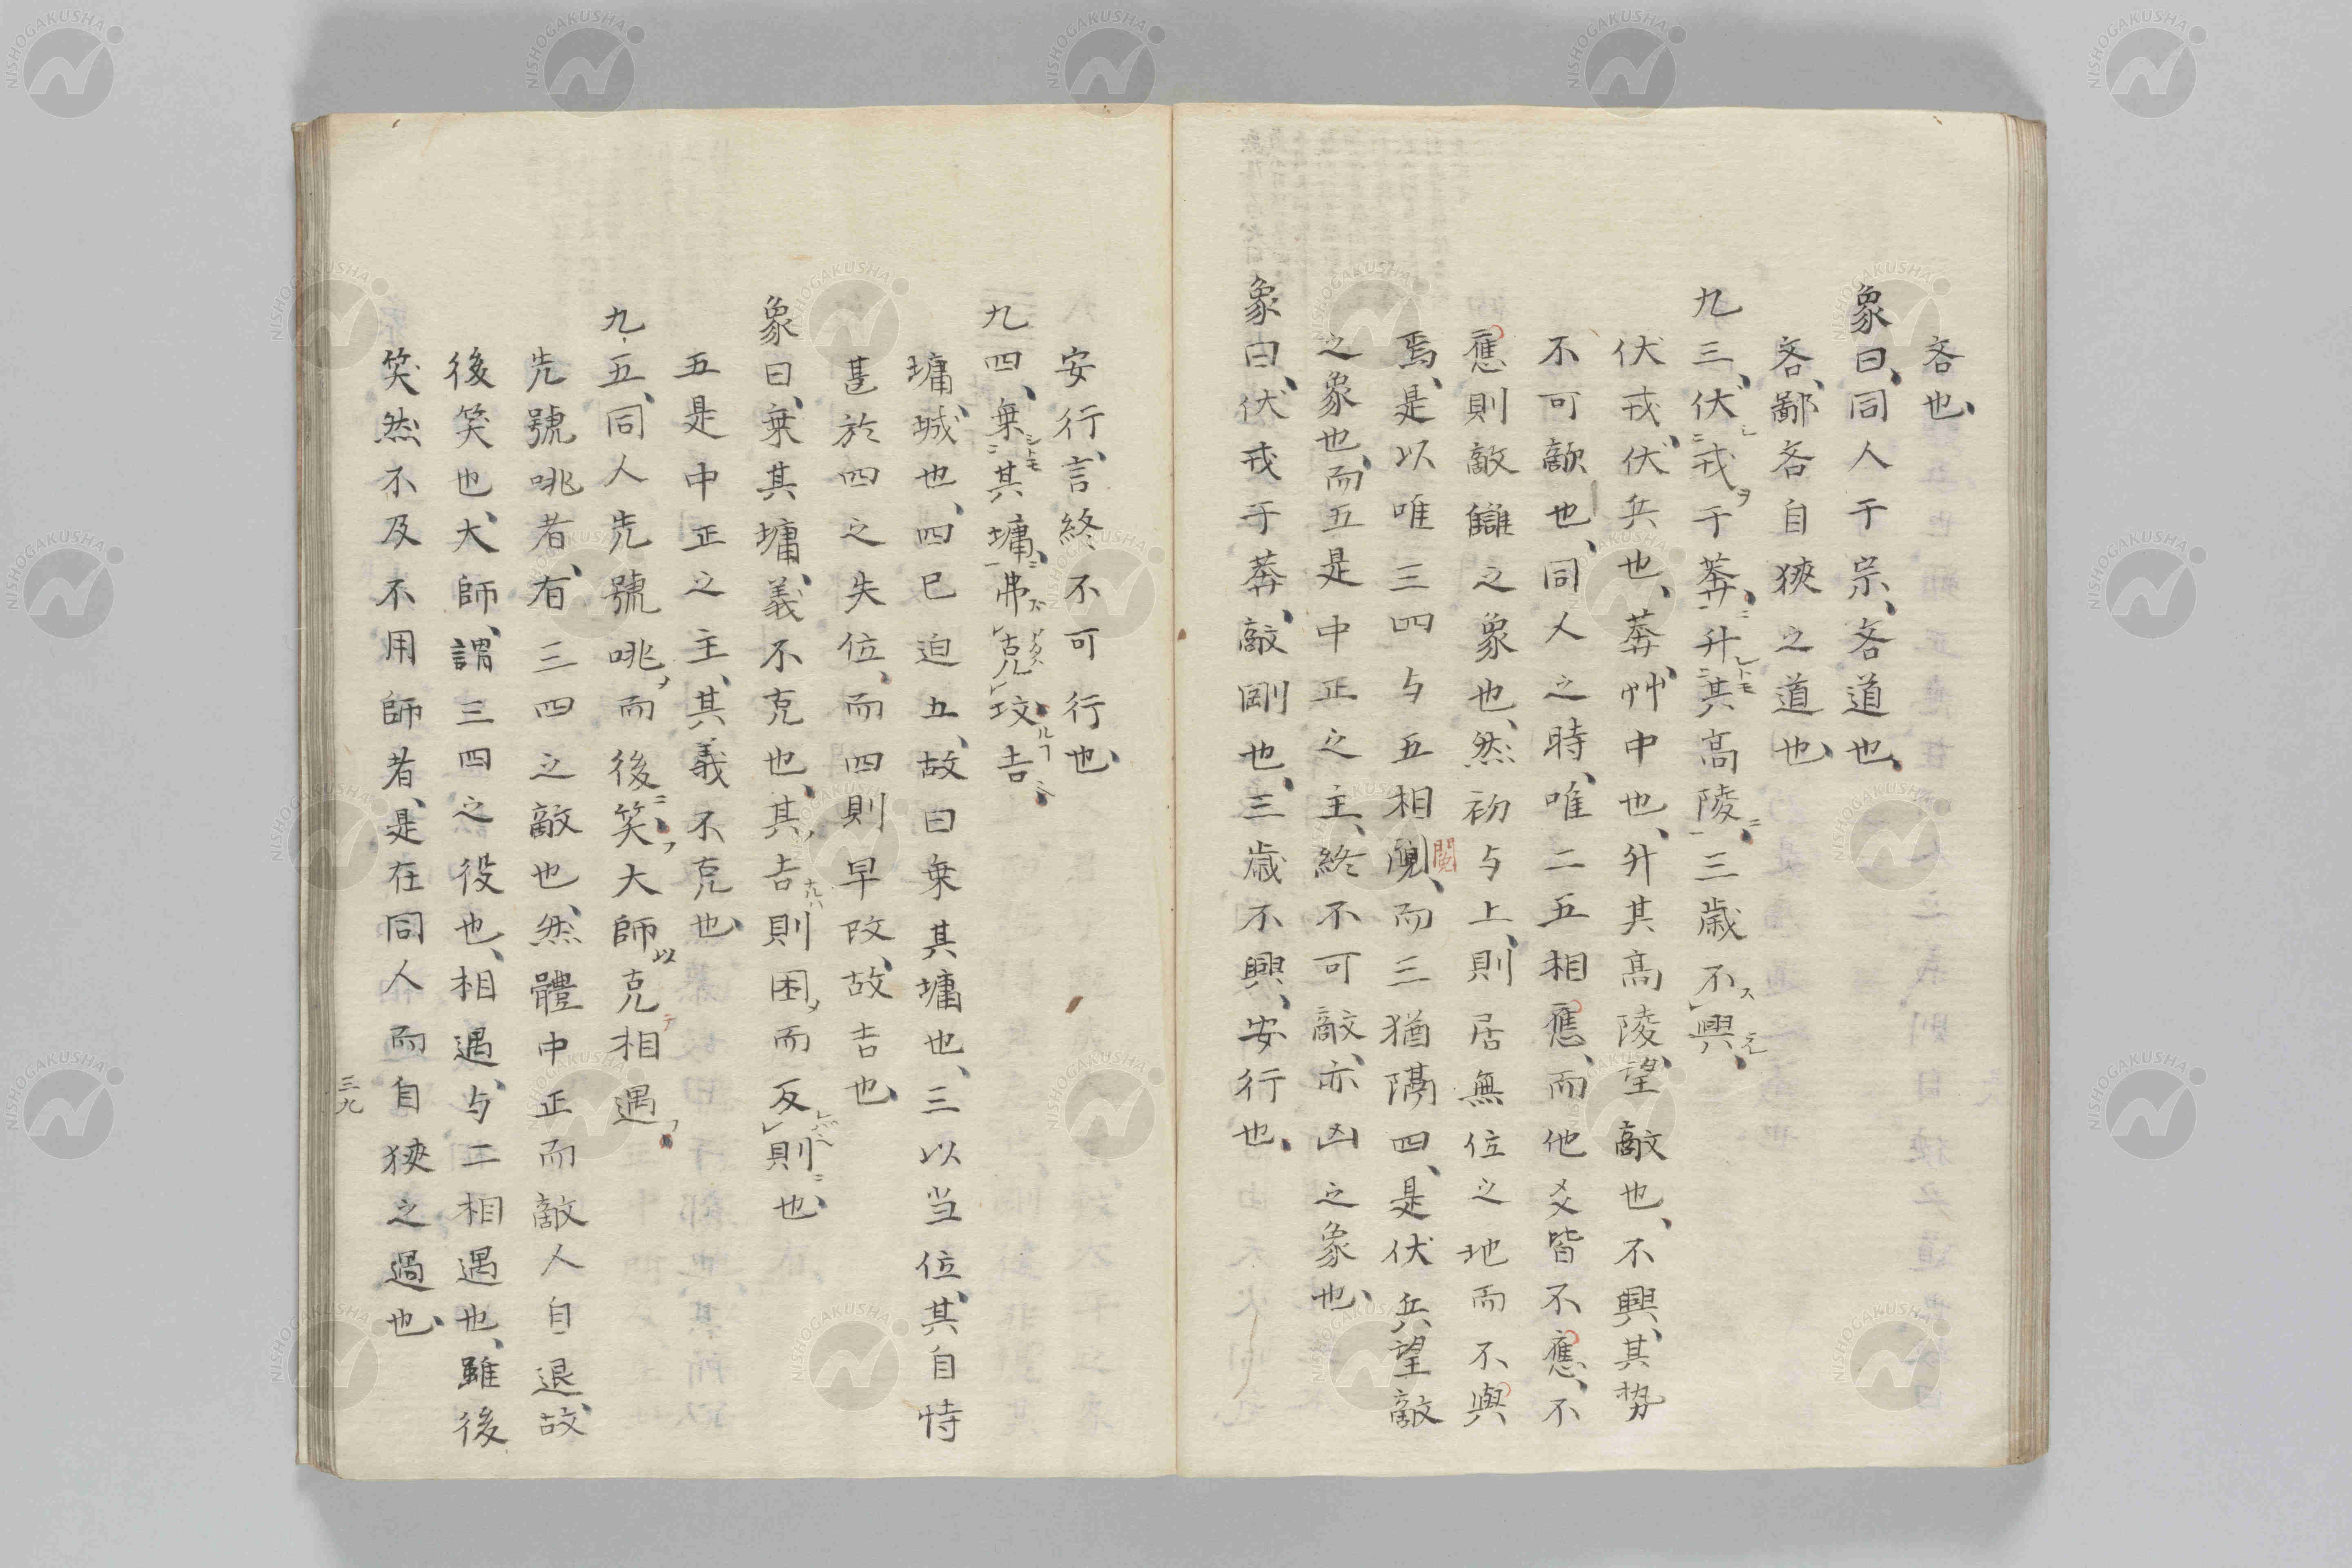 吝也、
象曰、同人于宗、吝道也、
吝、鄙吝自狹之道也、
九三、伏戎于莽、升其高陵、三歲不興、
伏戎、伏兵也、莽、艸中也、升其高陵、望敵也、不興、其势
不可敵也、同人之時、唯二五相應、而他爻皆不應、不
應則敵讎之象也、然初与上、則居無位之地而不與
焉、是以唯三四与五相鬩、而三猶隔四、是伏兵望敵
之象也、而五是中正之主、終不可敵、亦凶之象也、
象曰、伏戎于莽、敵剛也、三歲不興、安行也、
安行、言終不可行也、
九四、乗其墉、弗克攻、吉
墉、城也、四已迫五、故曰乗其墉也、三以当位、其自恃
甚於四之失位、而四則早改、故吉也、
象曰、乗其墉、義不克也、其吉則困而反則也、
五是中正之主、其義不克也、
九五、同人先號咷而後笑、大師克相遇
先號咷者、有三四之敵也、然體中正而敵人自退、故
後笑也、大師、謂三四之役也、相遇、与二相遇也、雖後
笑、然不及不用師者、是在同人而自狹之過也、
三九